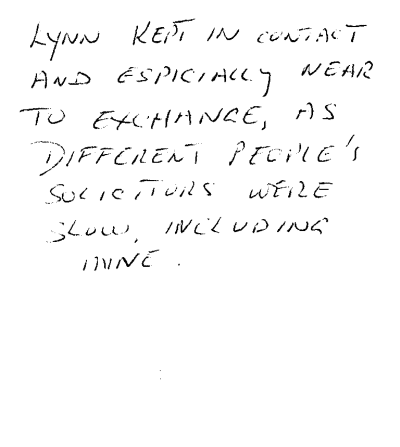 LYNN KEPT IN CONTACT
AND ESPICIALLY NEAR
TO EXCHANGE, AS
DIFFERENT PEOPLE'S
SOLICITORS WERE
SLOW, INCLUDING
MINE.